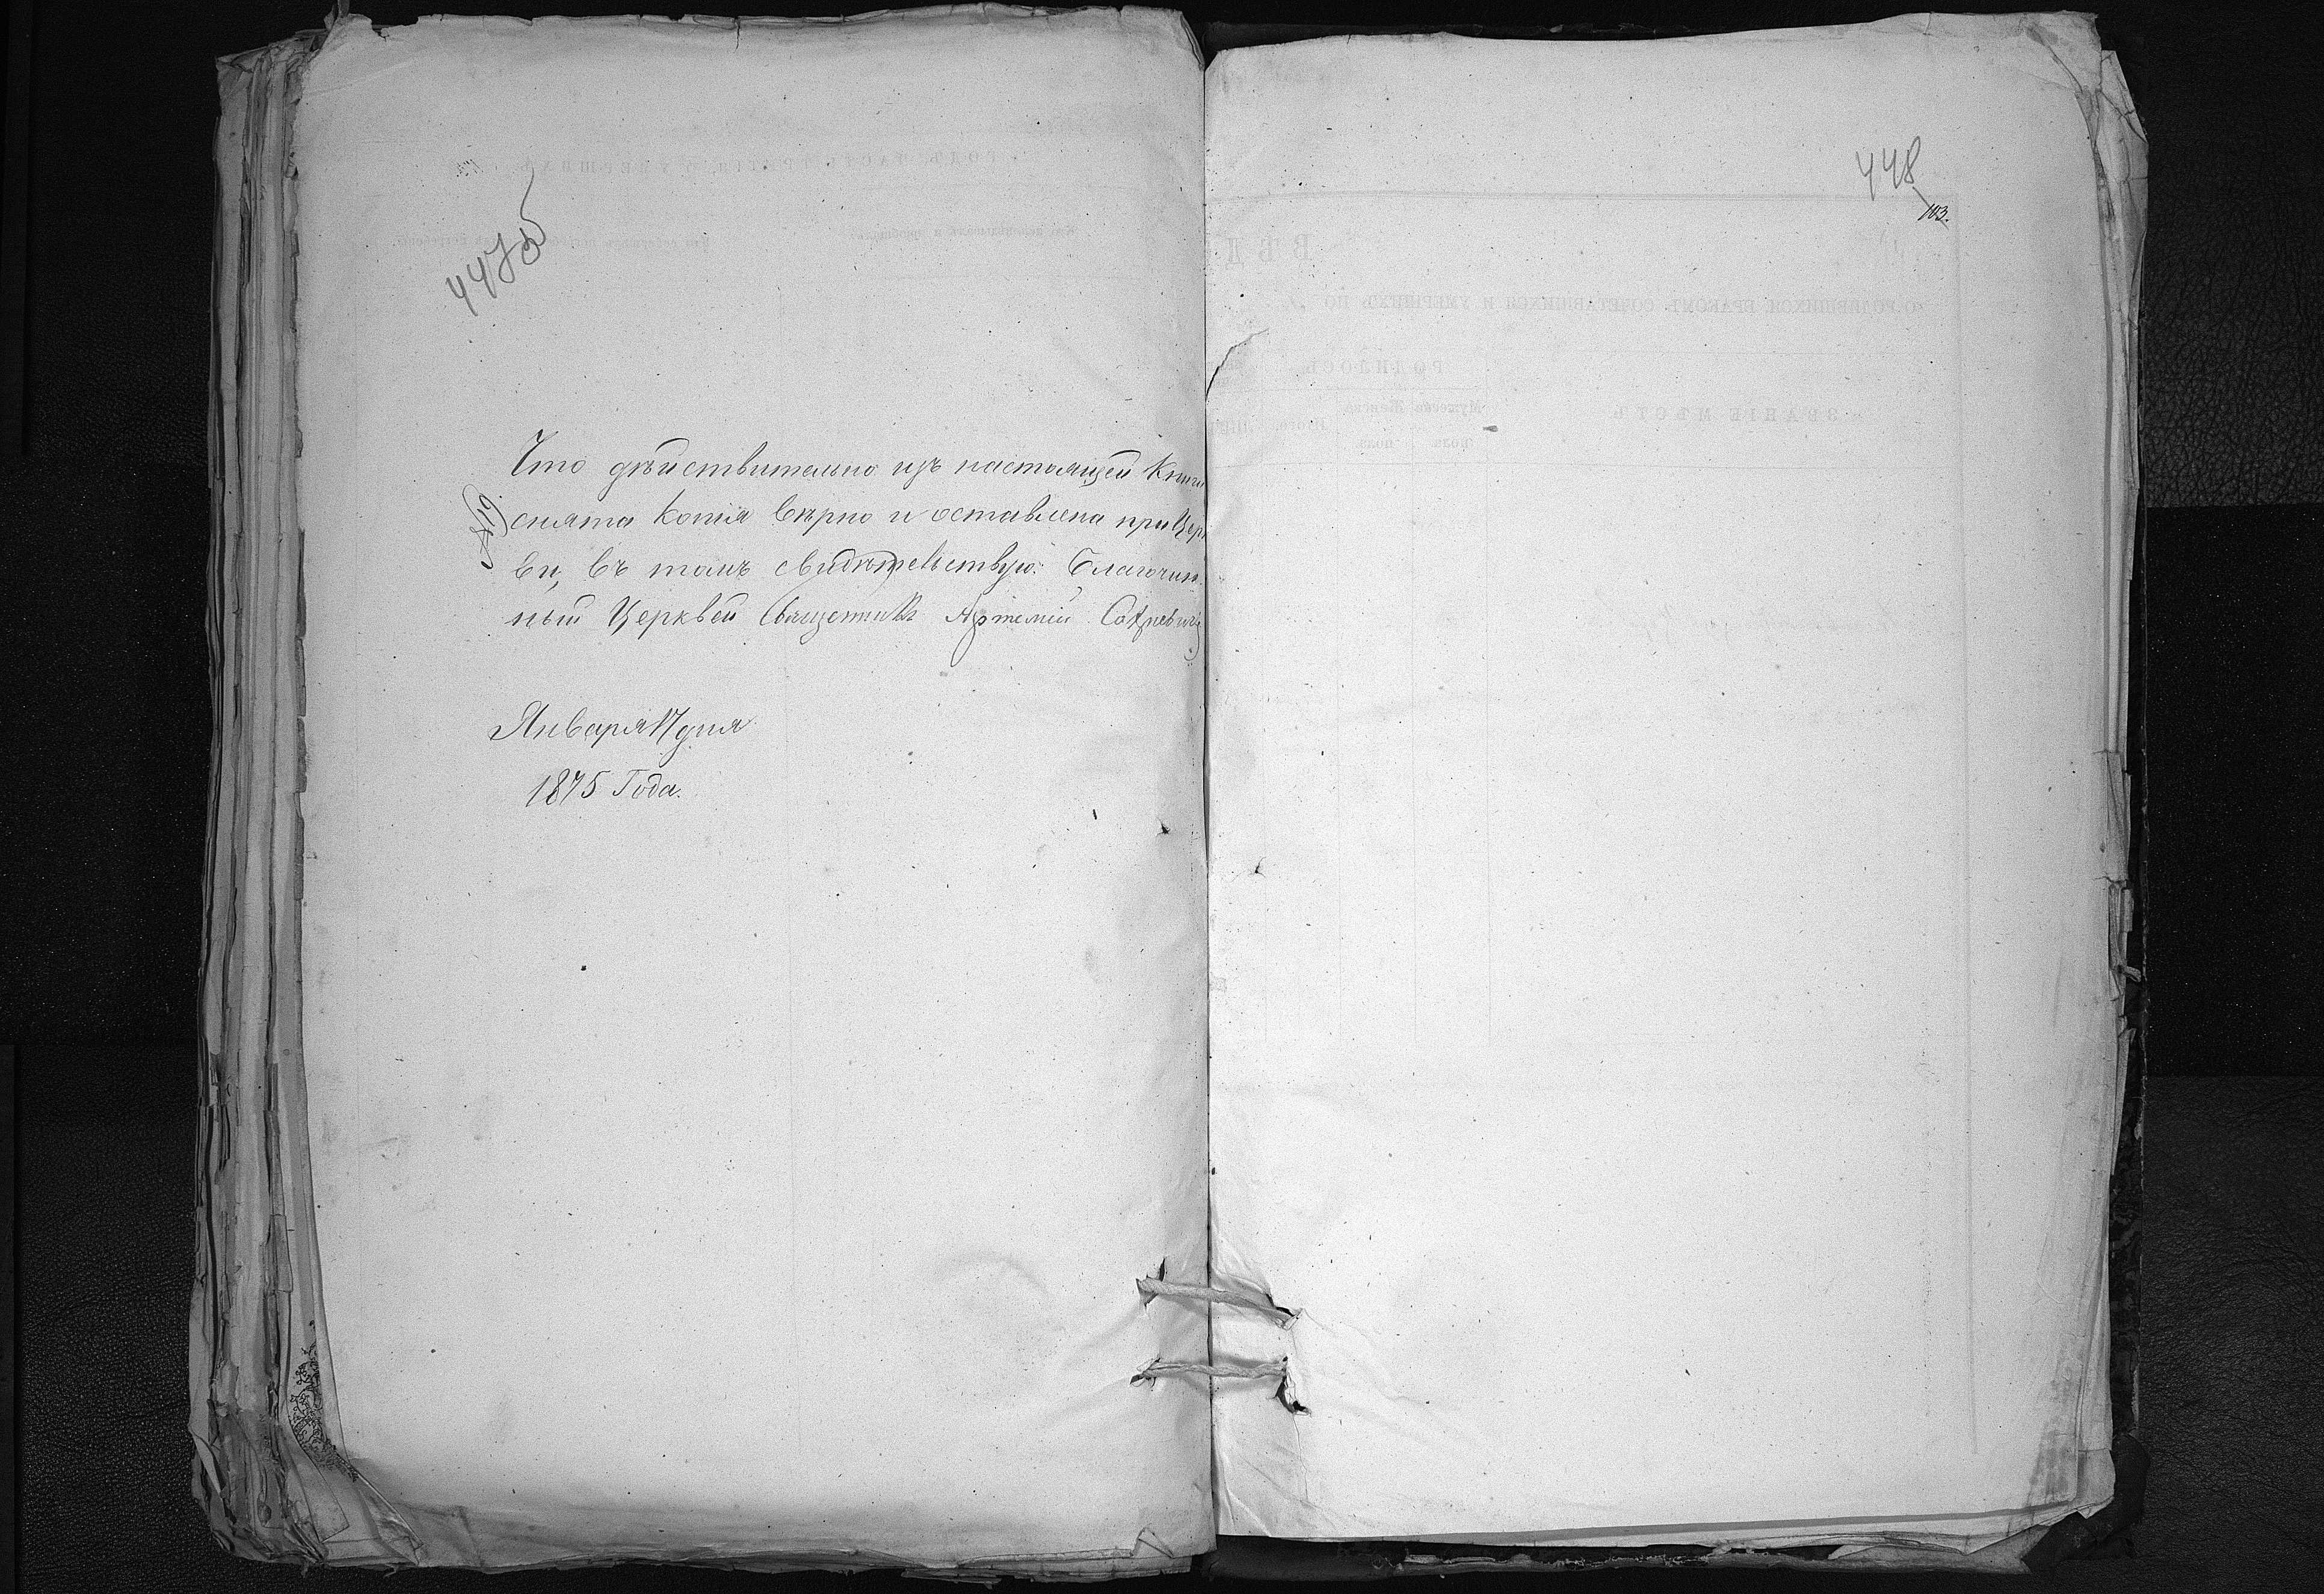 447об
Что дѣйствительно изъ настоящей Книги
снята копія вѣрно и оставлена при Церк
ви, въ томъ свидѣтельствую: Благочин-
ный Церквей Священникъ Артемій
Января 17 дня
1875 Года.
448
103.